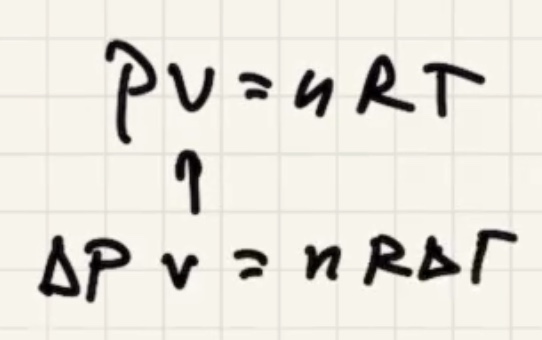 PV = nRT
↑
ΔP v = nRΔT